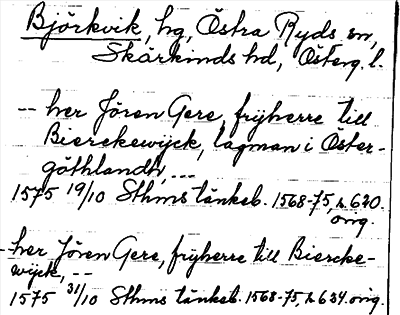 Björkvik, hg, Östra Ryds sn,
Skärkinds hd, Österg. l.
-- her Jören Gere, frijherre till
Bierckewijck, lagman i Öster-
göthlandh, ---
1575 19/10 Sthms tänkeb. 1568-75, s. 620.
orig.
- her Jören Gere, frijherre till Biercke-
wijck, --
1575 31/10 Sthms tänkeb. 1568-75, s. 634. orig.